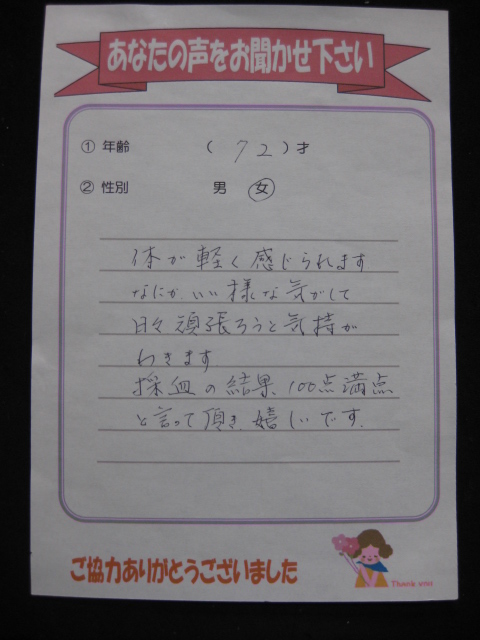 あなたの声をお聞かせ下さい
① 年齢 (72)才
② 性別 男 女
体が軽く感じられます
なにか、いい様な気がして
日々頑張ろうと気持が
わきます
採血の結果、100点満点
と言って頂き、嬉しいです.
ご協力ありがとうございました
Thank you